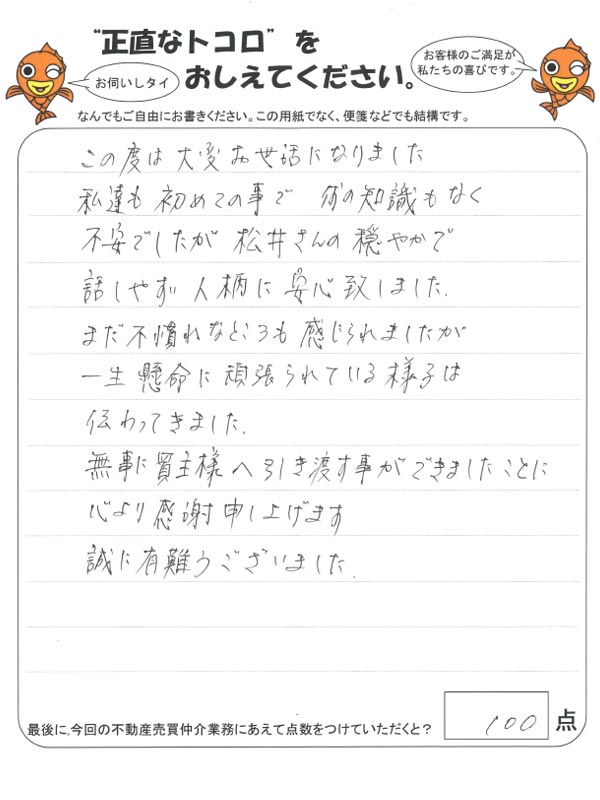 "正直なトコロ"を
おしえてください。
お伺いしタイ
お客様のご満足が
私たちの喜びです。
なんでもご自由にお書きください。この用紙でなく、便箋などでも結構です。
この度は大変お世話になりました
私達も初めての事で 何の知識もなく
不安でしたが松井さんの穏やかで
話しやすい人柄に安心致しました.
まだ不慣れなところも感じられましたが
一生懸命に頑張られている様子は
伝わってきました.
無事に買主様へ引き渡す事ができましたことに
心より感謝申し上げます
誠に有難うございました.
最後に、今回の不動産売買仲介業務にあえて点数をつけていただくと?
100
点